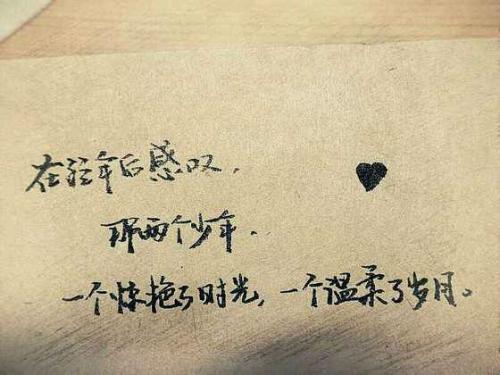 在经年后感叹,
那两个少年.
一个惊艳了时光,一个温柔了岁月。